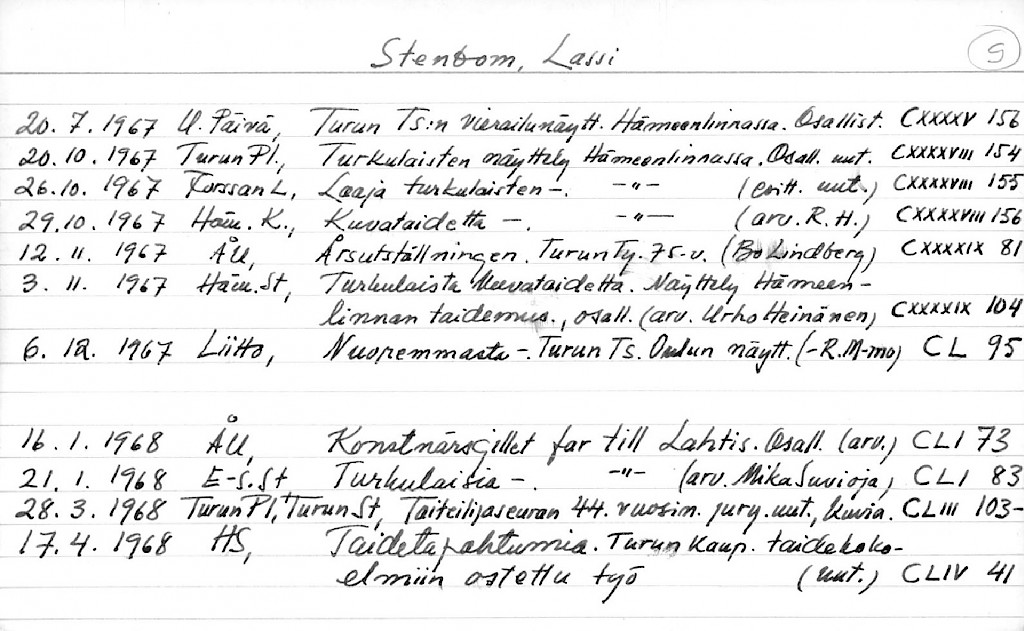 Stenbom, Lassi 9
20.7.1967 U. Päivä, Turun Ts:n vierailunäytt. Hämeenlinnassa. Osallist. CXXXXV 156
20.10.1967 Turun Pl., Turkulaisten näyttely Hämeenlinnassa. Osall. uut. CXXXXVIII 154
26.10.1967 Forssan L, Laaja turkulaisten -. -"- (esitt. uut.) CXXXXVIII 155
29.10.1967 Häm. K., Kuvataidetta -. -"- (arv. R.H.) CXXXXVIII 156
12.11.1967 ÅU, Årsutställningen. Turun Ty. 75-v. (Bo Lindberg) CXXXXIX 81
3.11.1967 Häm. St, Turkulaista kuvataidetta. Näyttely Hämeen-
linnan taidemus., osall. (arv. Urho Heinänen) CXXXXIX 104
6.12.1967 Liitto, Nuoremmasta -. Turun Ts. Oulun näytt. (-R.M-mo) CL 95
16.1.1968 ÅU, Konstnärsgillet far till Lahtis. Osall. (arv.) CLI 73
21.1.1968 E-S.St Turkulaisia -. -"- (arv. Mika Suvioja) CLI 83
28.3.1968 Turun Pl, + Turun St, Taiteilijaseuran 44. vuosin. jury. uut., kuvia. CLIII 103-
17.4.1968 HS, Taidetapahtumia. Turun Kaup. taidekoko-
elmiin ostettu työ (uut.) CLIV 41